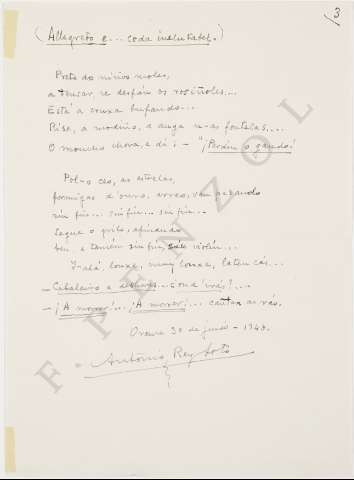 3
(Allegreto e... coda ineluctabel.)
Preto do níveos moles,
a touzar, se desfán os rosiñoles...
Está a curuxa bufando...
Riso, a modiño, a auga n-as fontelas....
O moucho chora, e dí: – "¡Perdín o gando!
Pol-o ceo, as estrelas,
formigas d'ouro, van arando
sin fin... sin fin... sin fin...
Segue o grilo, afinando
ben e tamén sin fin, violín...
Y-alá lonxe, muy lonxe, laten cás...
– Cabaleiro
– ¡A morrer!... ¡A morrer!... cantan as rás.
Orense 30 de junio – 1940.
Antonio Rey Soto
F PENZOL